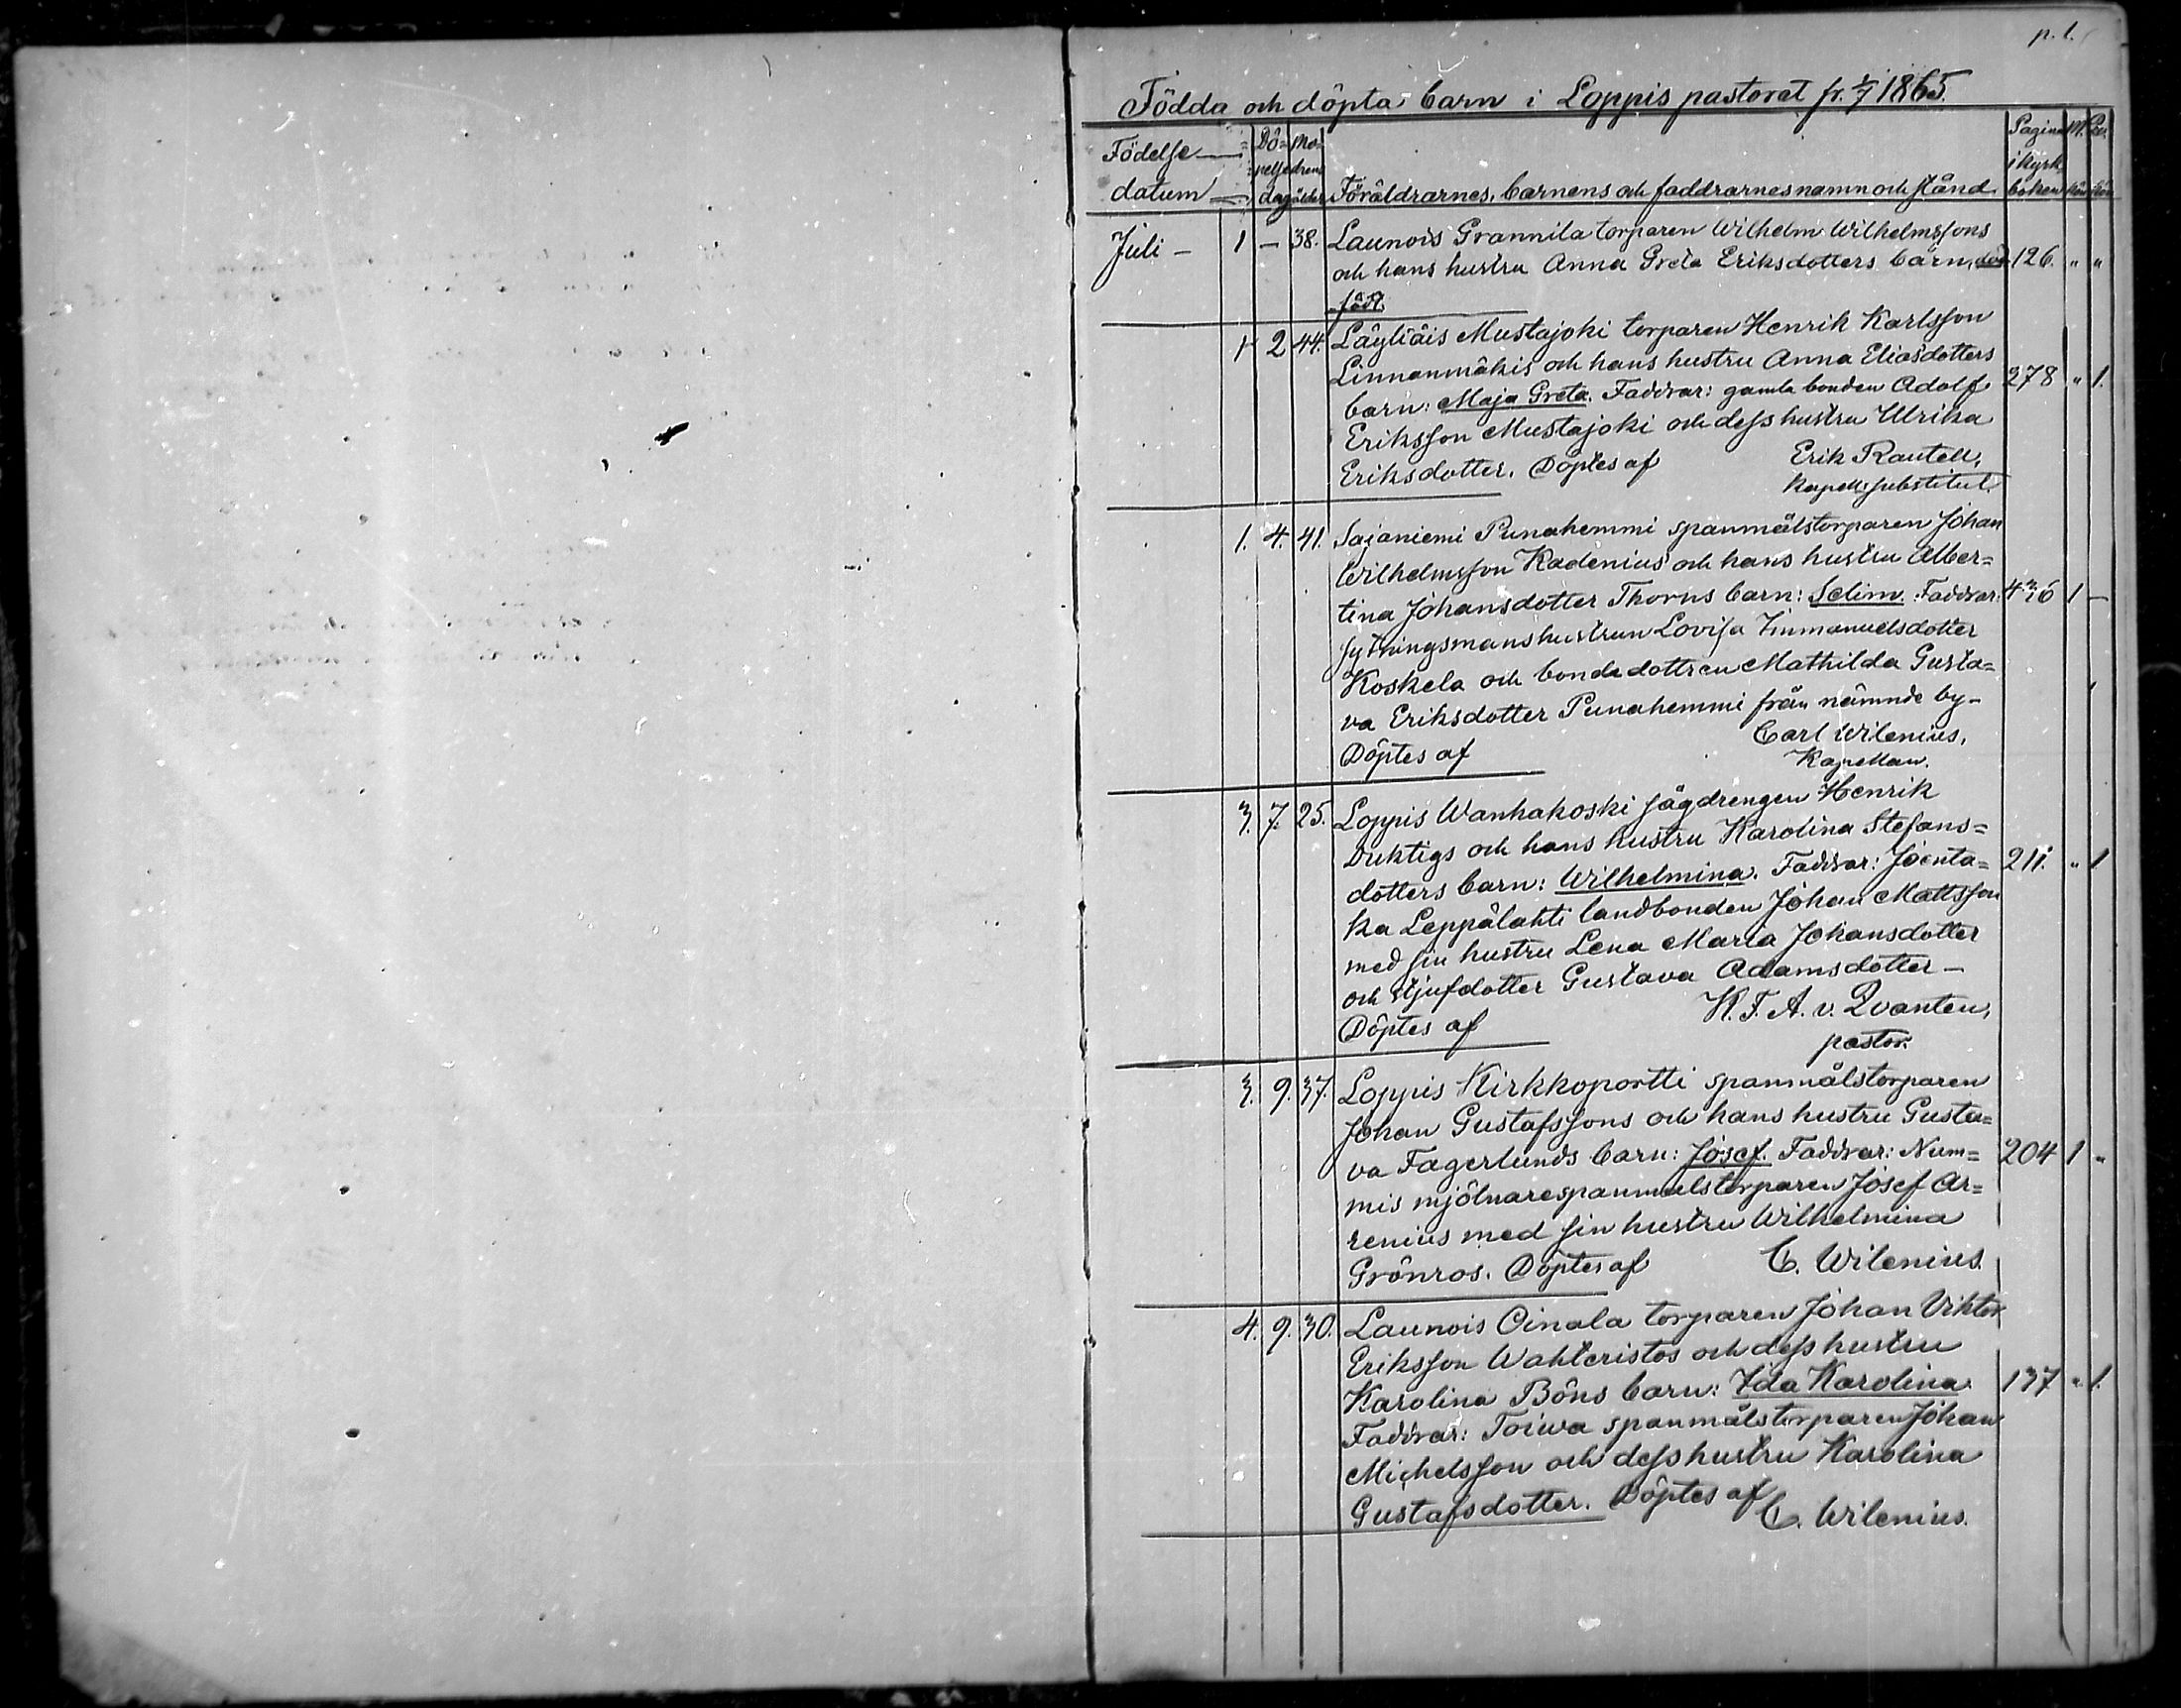 p. 1.
Födda och döpta barn i Loppis pastorat fr. 1/7 1865.
Födelse datum Döpelsedag Modrens ålder Föräldrarnes, barnens och faddrarnes namn och stånd Pagina i kyrkboken
Juli - 1 - 38. Launois Grannila torparen Wilhelm Wilhelmssons
och hans hustru Anna Greta Eriksdotters barn, död- 126. " "
född.
1 2 44. Läyliäis Mustajoki torparen Henrik Karlsson
Linnanmäkis och hans hustru Anna Eliasdotters
barn: Maja Greta. Faddrar: gamla bonden Adolf 278 " 1.
Eriksson Mustajoki och dess hustru Ulrika
Eriksdotter. Döptes af Erik Rautell,
Kapell: substitut.
1. 4. 41. Sajaniemi Punahemmi spanmålstorparen Johan
Wilhelmsson Kadenius och hans hustru Alber=
tina Johansdotter Thorns barn: Selim. Faddrar: 436 1 -
sytningsmanshustrun Lovisa Immanuelsdotter
Koskela och bondedottren Mathilda Gusta=
va Eriksdotter Punahemmi från nämnde by -
Carl Wilenius,
Döptes af Kapellan.
3. 7. 25. Loppis Wanhakoski sågdrengen Henrik
Duktigs och hans hustru Karolina Stefans=
dotters barn: Wilhelmina. Faddrar: Joenta= 211. " 1
ka Leppälahti landbonden Johan Mattsson
med sin hustru Lena Maria Johansdotter
och styfdotter Gustava Adamsdotter -
Döptes af K. F. A. v. Qvanten,
pastor.
3. 9. 37. Loppis Kirkkoportti spanmålstorparen
Johan Gustafssons och hans hustru Gusta=
va Fagerlunds barn: Josef. Faddrar: Num= 204 1 "
mis mjölnarespanmålstorparen Josef Ar=
renius med sin hustru Wilhelmina
Grönros. Döptes af C. Wilenius.
4. 9. 30. Launois Oinala torparen Johan Viktor
Eriksson Wahteristos och dess hustru
Karolina Böns barn: Ida Karolina. 137 " 1.
Faddrar: Toiwa spanmålstorparen Johan
Michelsson och dess hustru Karolina
Gustafsdotter. Döptes af C. Wilenius.